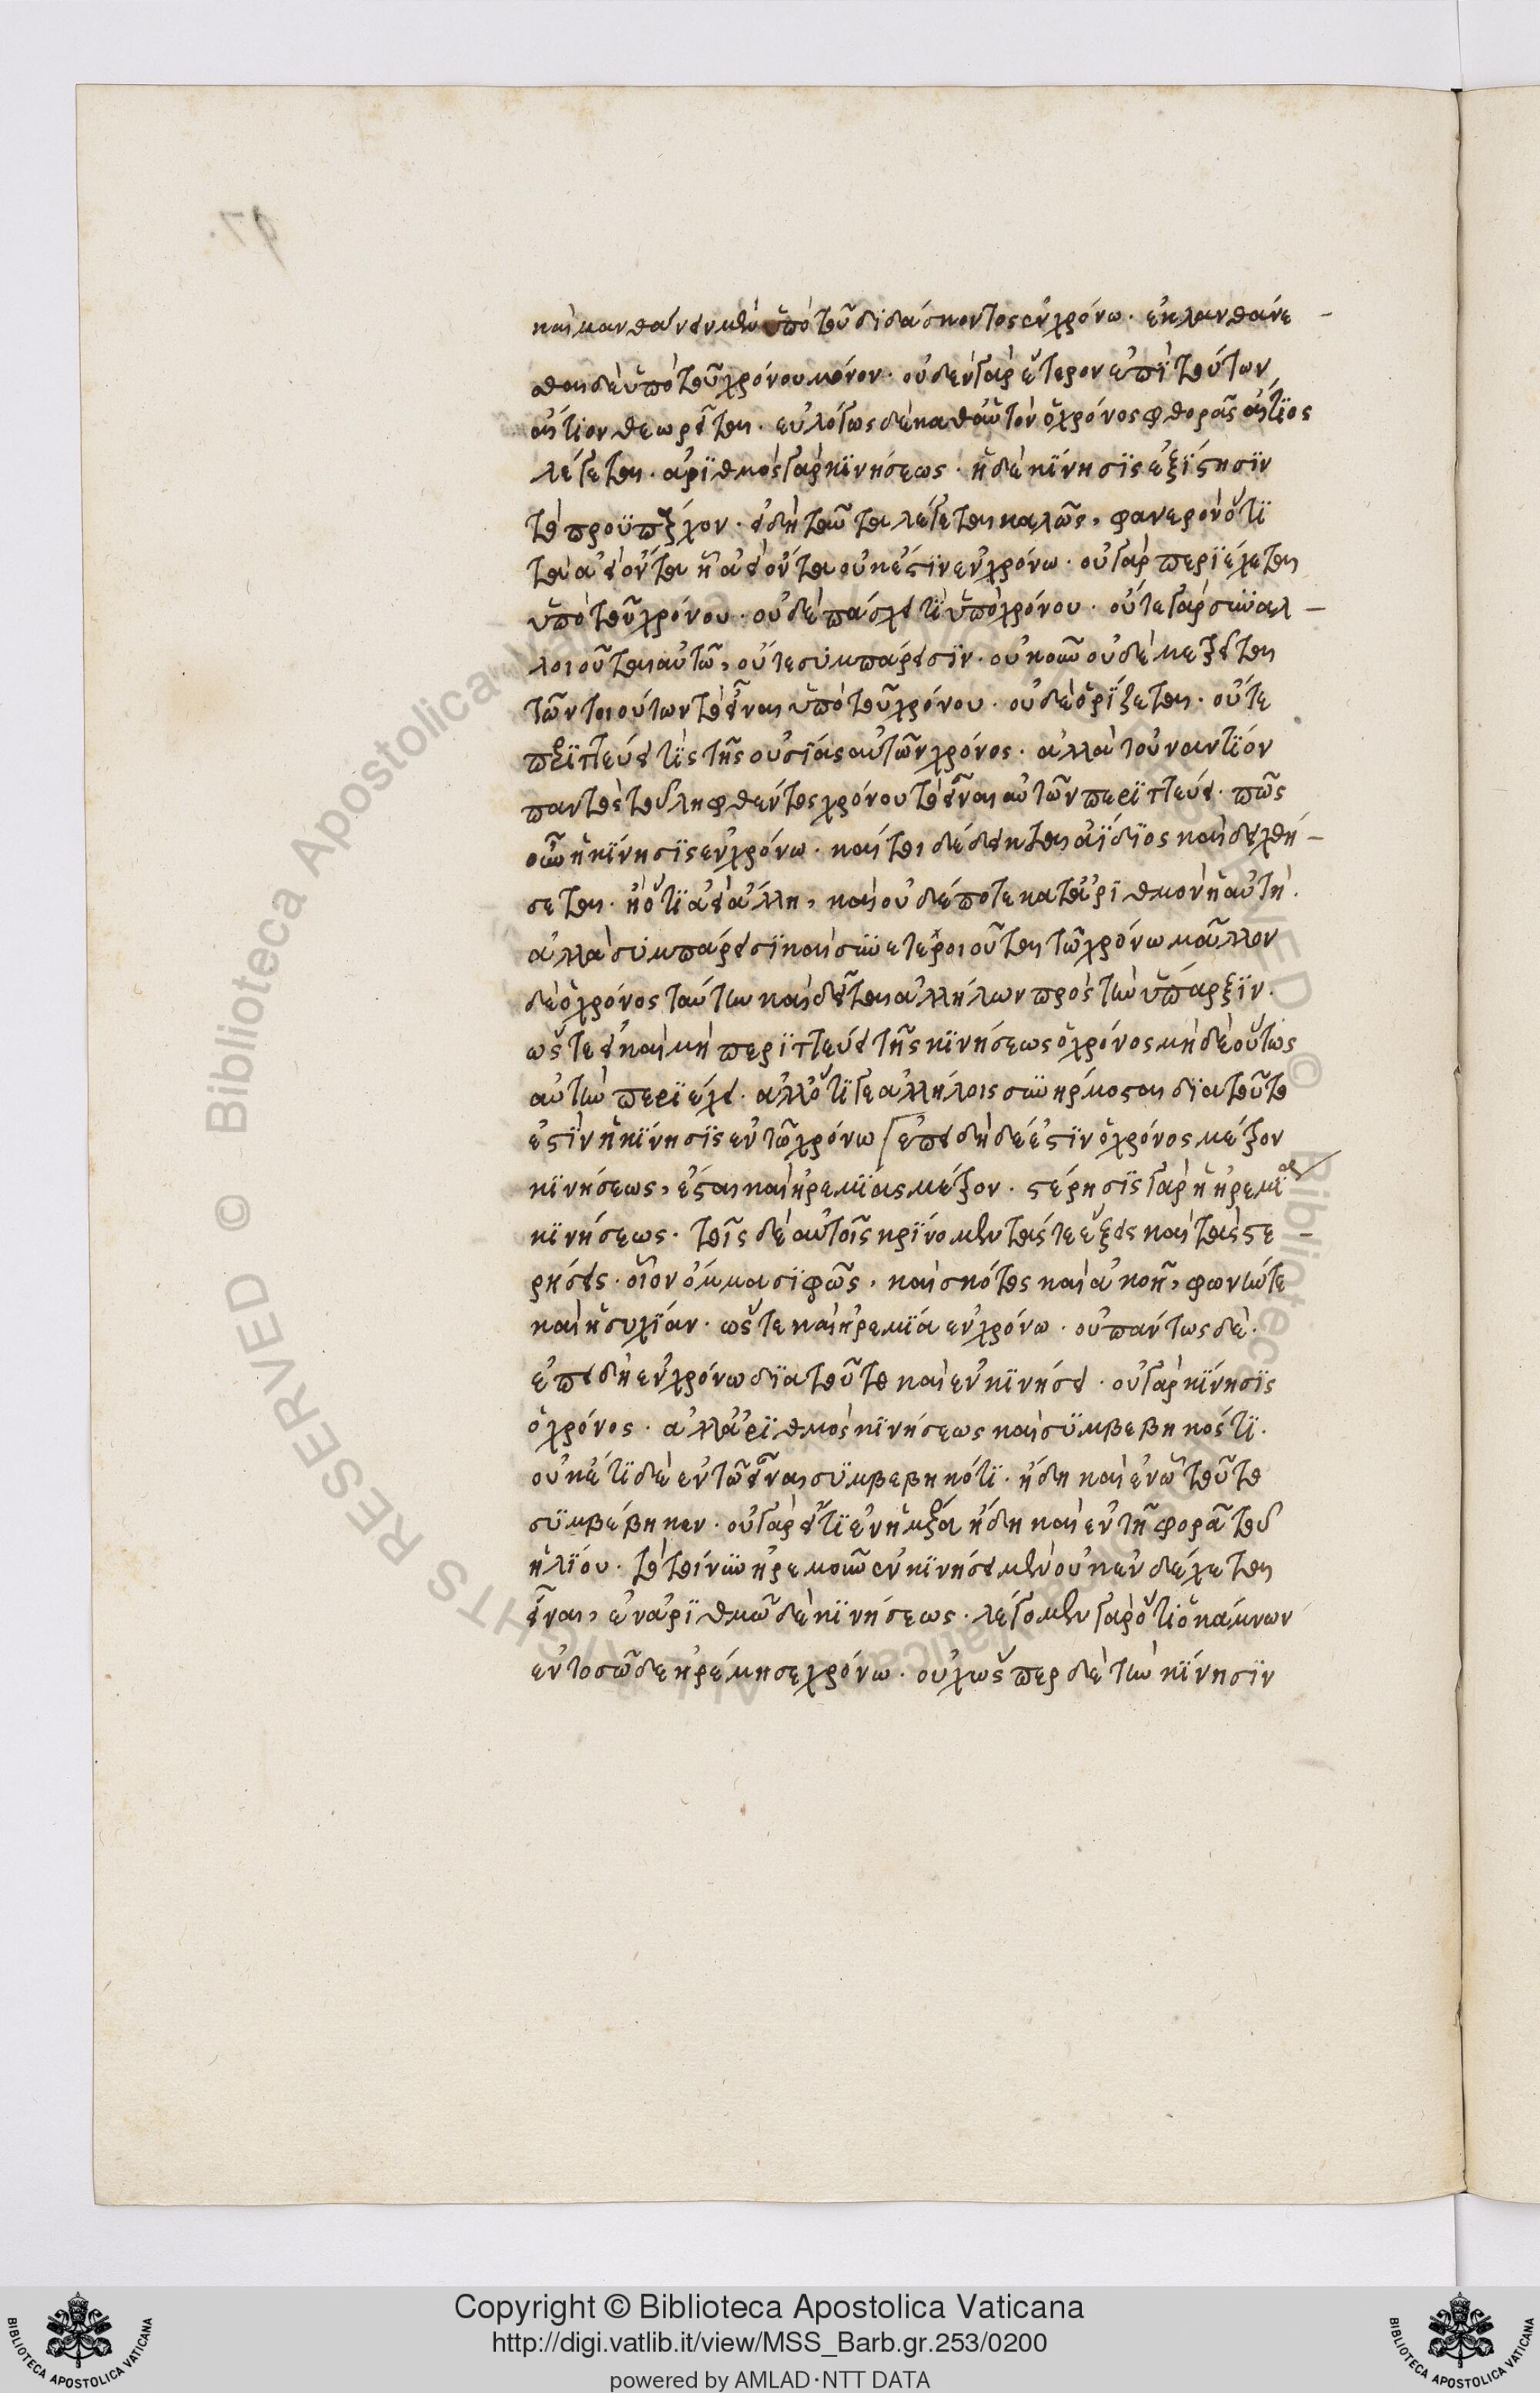 καὶ μανθάνειν μὲν ὑπὸ τοῦ διδάσκοντος ἐν χρόνω· ἐκλανθάνε-
σθαι δὲ ὑπὸ τοῦ χρόνου μόνον· οὐδὲν γὰρ ἕτερον ἐπὶ τούτων
αἴτιον θεωρεῖται· εὐλόγως δὲ καθ' αὑτὸν ὁ χρόνος φθορᾶς αἴτιος
λέγεται· ἀριθμὸς γὰρ κινήσεως· ἡ δὲ κίνησις ἐξίστησιν
τὸ προϋπάρχον· εἰ δὴ ταῦτα λέγεται καλῶς, φανερὸν ὅτι
τὰ ἀεὶ ὄντα ἢ ἀεὶ ὄντα οὐκ ἔστιν ἐν χρόνω· οὐ γὰρ περιέχεται
ὑπὸ τοῦ χρόνου· οὐδὲ πάσχει τι ὑπὸ χρόνου· οὔτε γὰρ συναλ-
λοιοῦται αὐτῶ, οὔτε συμπάρεισιν· οὐκοῦν οὐδὲ μετρεῖται
τῶν τοιούτων τὸ εἶναι ὑπὸ τοῦ χρόνου· οὐδὲ ὁρίζεται· οὔτε
περιττεύει τις τῆς οὐσίας αὐτῶν χρόνος· ἀλλὰ τοὐναντίον
παντὸς τοῦ ληφθέντος χρόνου τὸ εἶναι αὐτῶν περιττεύει· πῶς
οὖν ἡ κίνησις ἐν χρόνω· καίτοι δέδεικται ἀΐδιος καὶ δειχθή-
σεται· ἢ ὅτι ἀεὶ ἄλλη, καὶ οὐδέποτε κατ' ἀριθμὸν ἡ αὐτή·
ἀλλὰ συμπάρεισι καὶ συνετεροιοῦται τῶ χρόνω μᾶλλον
δὲ ὁ χρόνος ταύτη καὶ δεῖται ἀλλήλων πρὸς τὴν ὕπαρξιν·
ὥστε εἰ καὶ μὴ περιττεύει τῆς κινήσεως ὁ χρόνος μὴ δὲ οὕτως
αὐτὴν περιέχει· ἀλλ' ὅτι γε ἀλλήλοις συνήρμοσται διὰ τοῦτο
ἐστὶν ἡ κίνησις ἐν τῶ χρόνω ἐπειδὴ δέ ἐστιν ὁ χρόνος μέτρον
κινήσεως, ἔσται καὶ ἠρεμίας μέτρον· στέρησις γὰρ ἡ ἠρεμία
κινήσεως· τοῖς δὲ αὐτοῖς κρίνομεν τάς τε ἕξεις καὶ τὰς στε-
ρήσεις· οἷον ὄμμασι φῶς, καὶ σκότος καὶ ἀκοῆ, φωνήν τε
καὶ ἡσυχίαν· ὥστε καὶ ἠρεμία ἐν χρόνω· οὐ πάντως δὲ·
ἐπειδὴ ἐν χρόνω διὰ τοῦτο καὶ ἐν κινήσει· οὐ γὰρ κίνησις
ὁ χρόνος· ἀλλ' ἀριθμὸς κινήσεως καὶ συμβεβηκός τι·
οὐκ ἔτι δὲ ἐν τῶ εἶναι συμβεβηκότι· ἤδη καὶ ἐν ὧ τοῦτο
συμβέβηκεν· οὐ γὰρ εἴ τι ἐν ἡμέρα ἤδη καὶ ἐν τῆ φορᾶ τοῦ
ἡλίου· τὸ τοίνυν ἠρεμοῦν ἐν κινήσει μὲν οὐκ ἐνδέχεται
εἶναι, ἐν ἀριθμῶ δὲ κινήσεως· λέγομεν γὰρ ὅτι ὁ κάμνων
ἐν τοσῶδε ἠρέμησε χρόνω· οὐχ ὥσπερ δὲ τὴν κίνησιν
97.
Copyright © Biblioteca Apostolica Vaticana
http://digi.vatlib.it/view/MSS_Barb.gr.253/0200
powered by AMLAD·NTT DATA